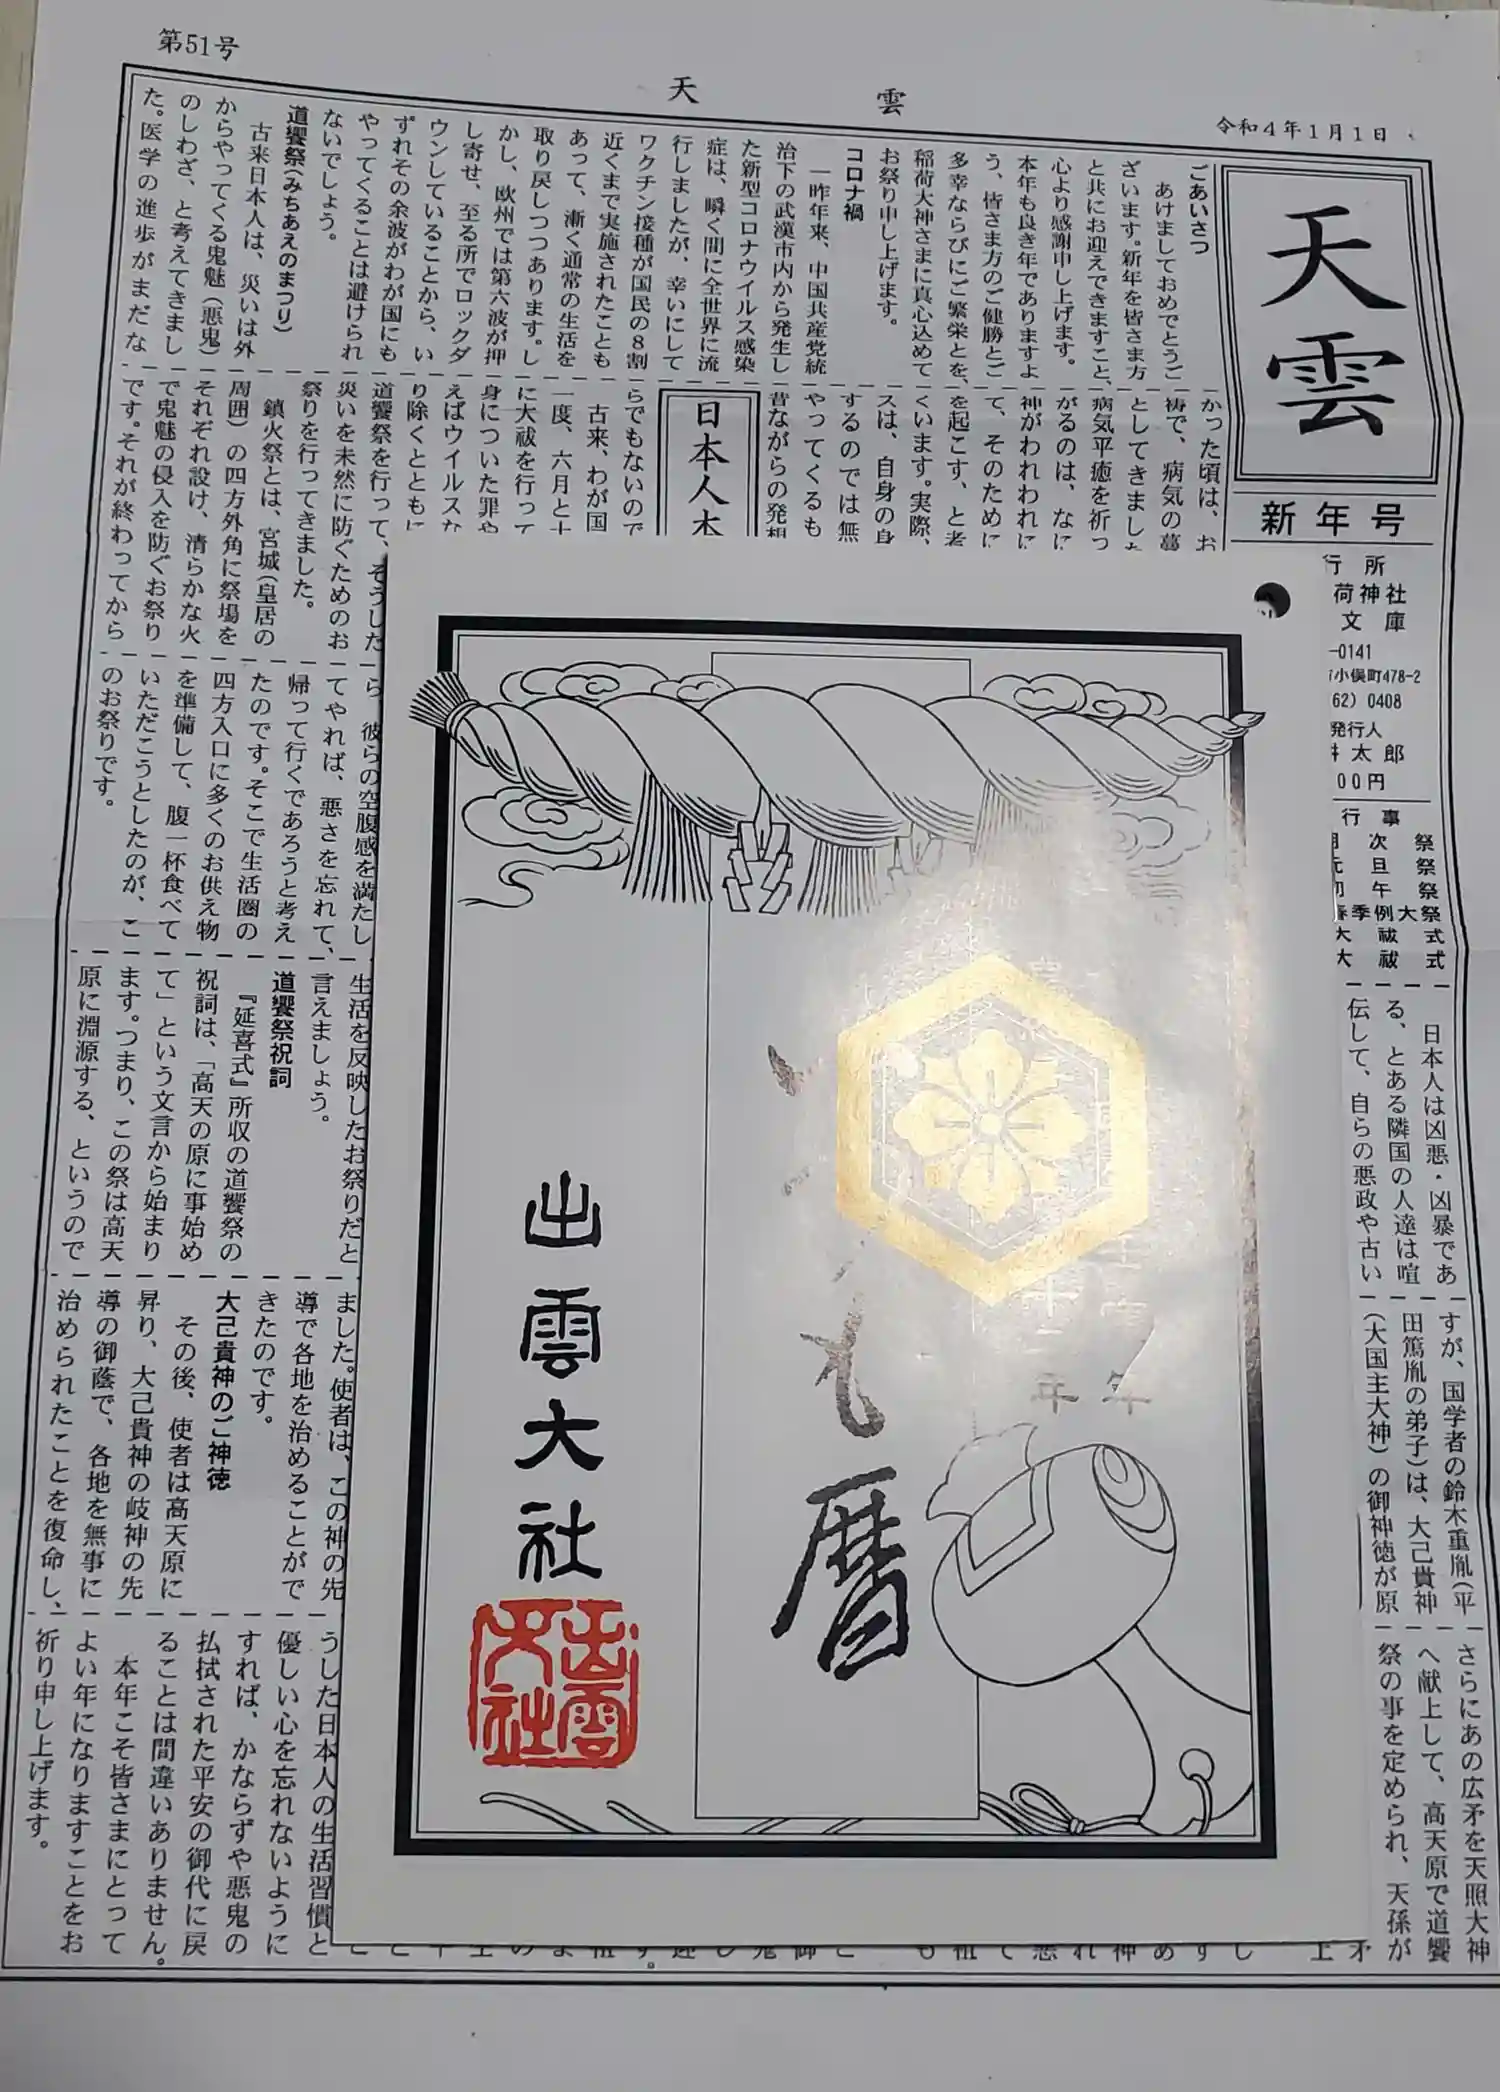 第51号
天雲
令和4年1月1日
天雲
新年号
行所
荷神社
文庫
-0141
小俣町478-2
62) 0408
発行人
太郎
00円
行事
次祭
旦祭
午祭
春季例大祭
大祓式
大祓式
ごあいさつ
あけましておめでとうご
ざいます。新年を皆さま方
と共にお迎えできますこと、
心より感謝申し上げます。
本年も良き年でありますよ
う、皆さま方のご健勝とご
多幸ならびにご繁栄とを、
稲荷大神さまに真心込めて
お祭り申し上げます。
コロナ禍
一昨年来、中国共産党統
治下の武漢市内から発生し
た新型コロナウイルス感染
症は、瞬く間に全世界に流
行しましたが、幸いにして
ワクチン接種が国民の8割
近くまで実施されたことも
あって、漸く通常の生活を
取り戻しつつあります。し
かし、欧州では第六波が押
し寄せ、至る所でロックダ
ウンしていることから、い
ずれその余波がわが国にも
やってくることは避けられ
ないでしょう。
道饗祭(みちあえのまつり)
古来日本人は、災いは外
からやってくる鬼魅(悪鬼)
のしわざ、と考えてきまし
た。医学の進歩がまだな
かった頃は、お
祷で、病気の蔓
としてきました
病気平癒を祈っ
がるのは、なに
神がわれわれに
て、そのために
を起こす、と考
くいます。実際、
スは、自身の身
するのでは無
やってくるも
昔ながらの発想
日本人本
らでもないので
古来、わが国
一度、六月と十
に大祓を行って
身についた罪や
えばウイルスな
り除くとともに
道饗祭を行って、そうした
災いを未然に防ぐためのお
祭りを行ってきました。
鎮火祭とは、宮城(皇居の
周囲)の四方外角に祭場を
それぞれ設け、清らかな火
で鬼魅の侵入を防ぐお祭り
です。それが終わってから
ら、彼らの空腹感を満たし
てやれば、悪さを忘れて、
帰って行くであろうと考え
たのです。そこで生活圏の
四方入口に多くのお供え物
を準備して、腹一杯食べて
いただこうとしたのが、こ
のお祭りです。
日本人は凶悪・凶暴であ
る、とある隣国の人達は喧
伝して、自らの悪政や古い
生活を反映したお祭りだと
言えましょう。
道饗祭祝詞
『延喜式』所収の道饗祭の
祝詞は、「高天の原に事始め
て」という文言から始まり
ます。つまり、この祭は高天
原に淵源する、というので
すが、国学者の鈴木重胤(平
田篤胤の弟子)は、大己貴神
(大国主大神)の御神徳が原
ました。使者は、この神の先
導で各地を治めることがで
きたのです。
大己貴神のご神徳
その後、使者は高天原に
昇り、大己貴神の岐神の先
導の御蔭で、各地を無事に
治められたことを復命し、
さらにあの広矛を天照大神
へ献上して、高天原で道饗
祭の事を定められ、天孫が
うした日本人の生活習慣と
優しい心を忘れないように
すれば、かならずや悪鬼の
払拭された平安の御代に戻
ることは間違いありません。
本年こそ皆さまにとって
よい年になりますことをお
祈り申し上げます。
年
年
暦
出雲大社
出雲
大社